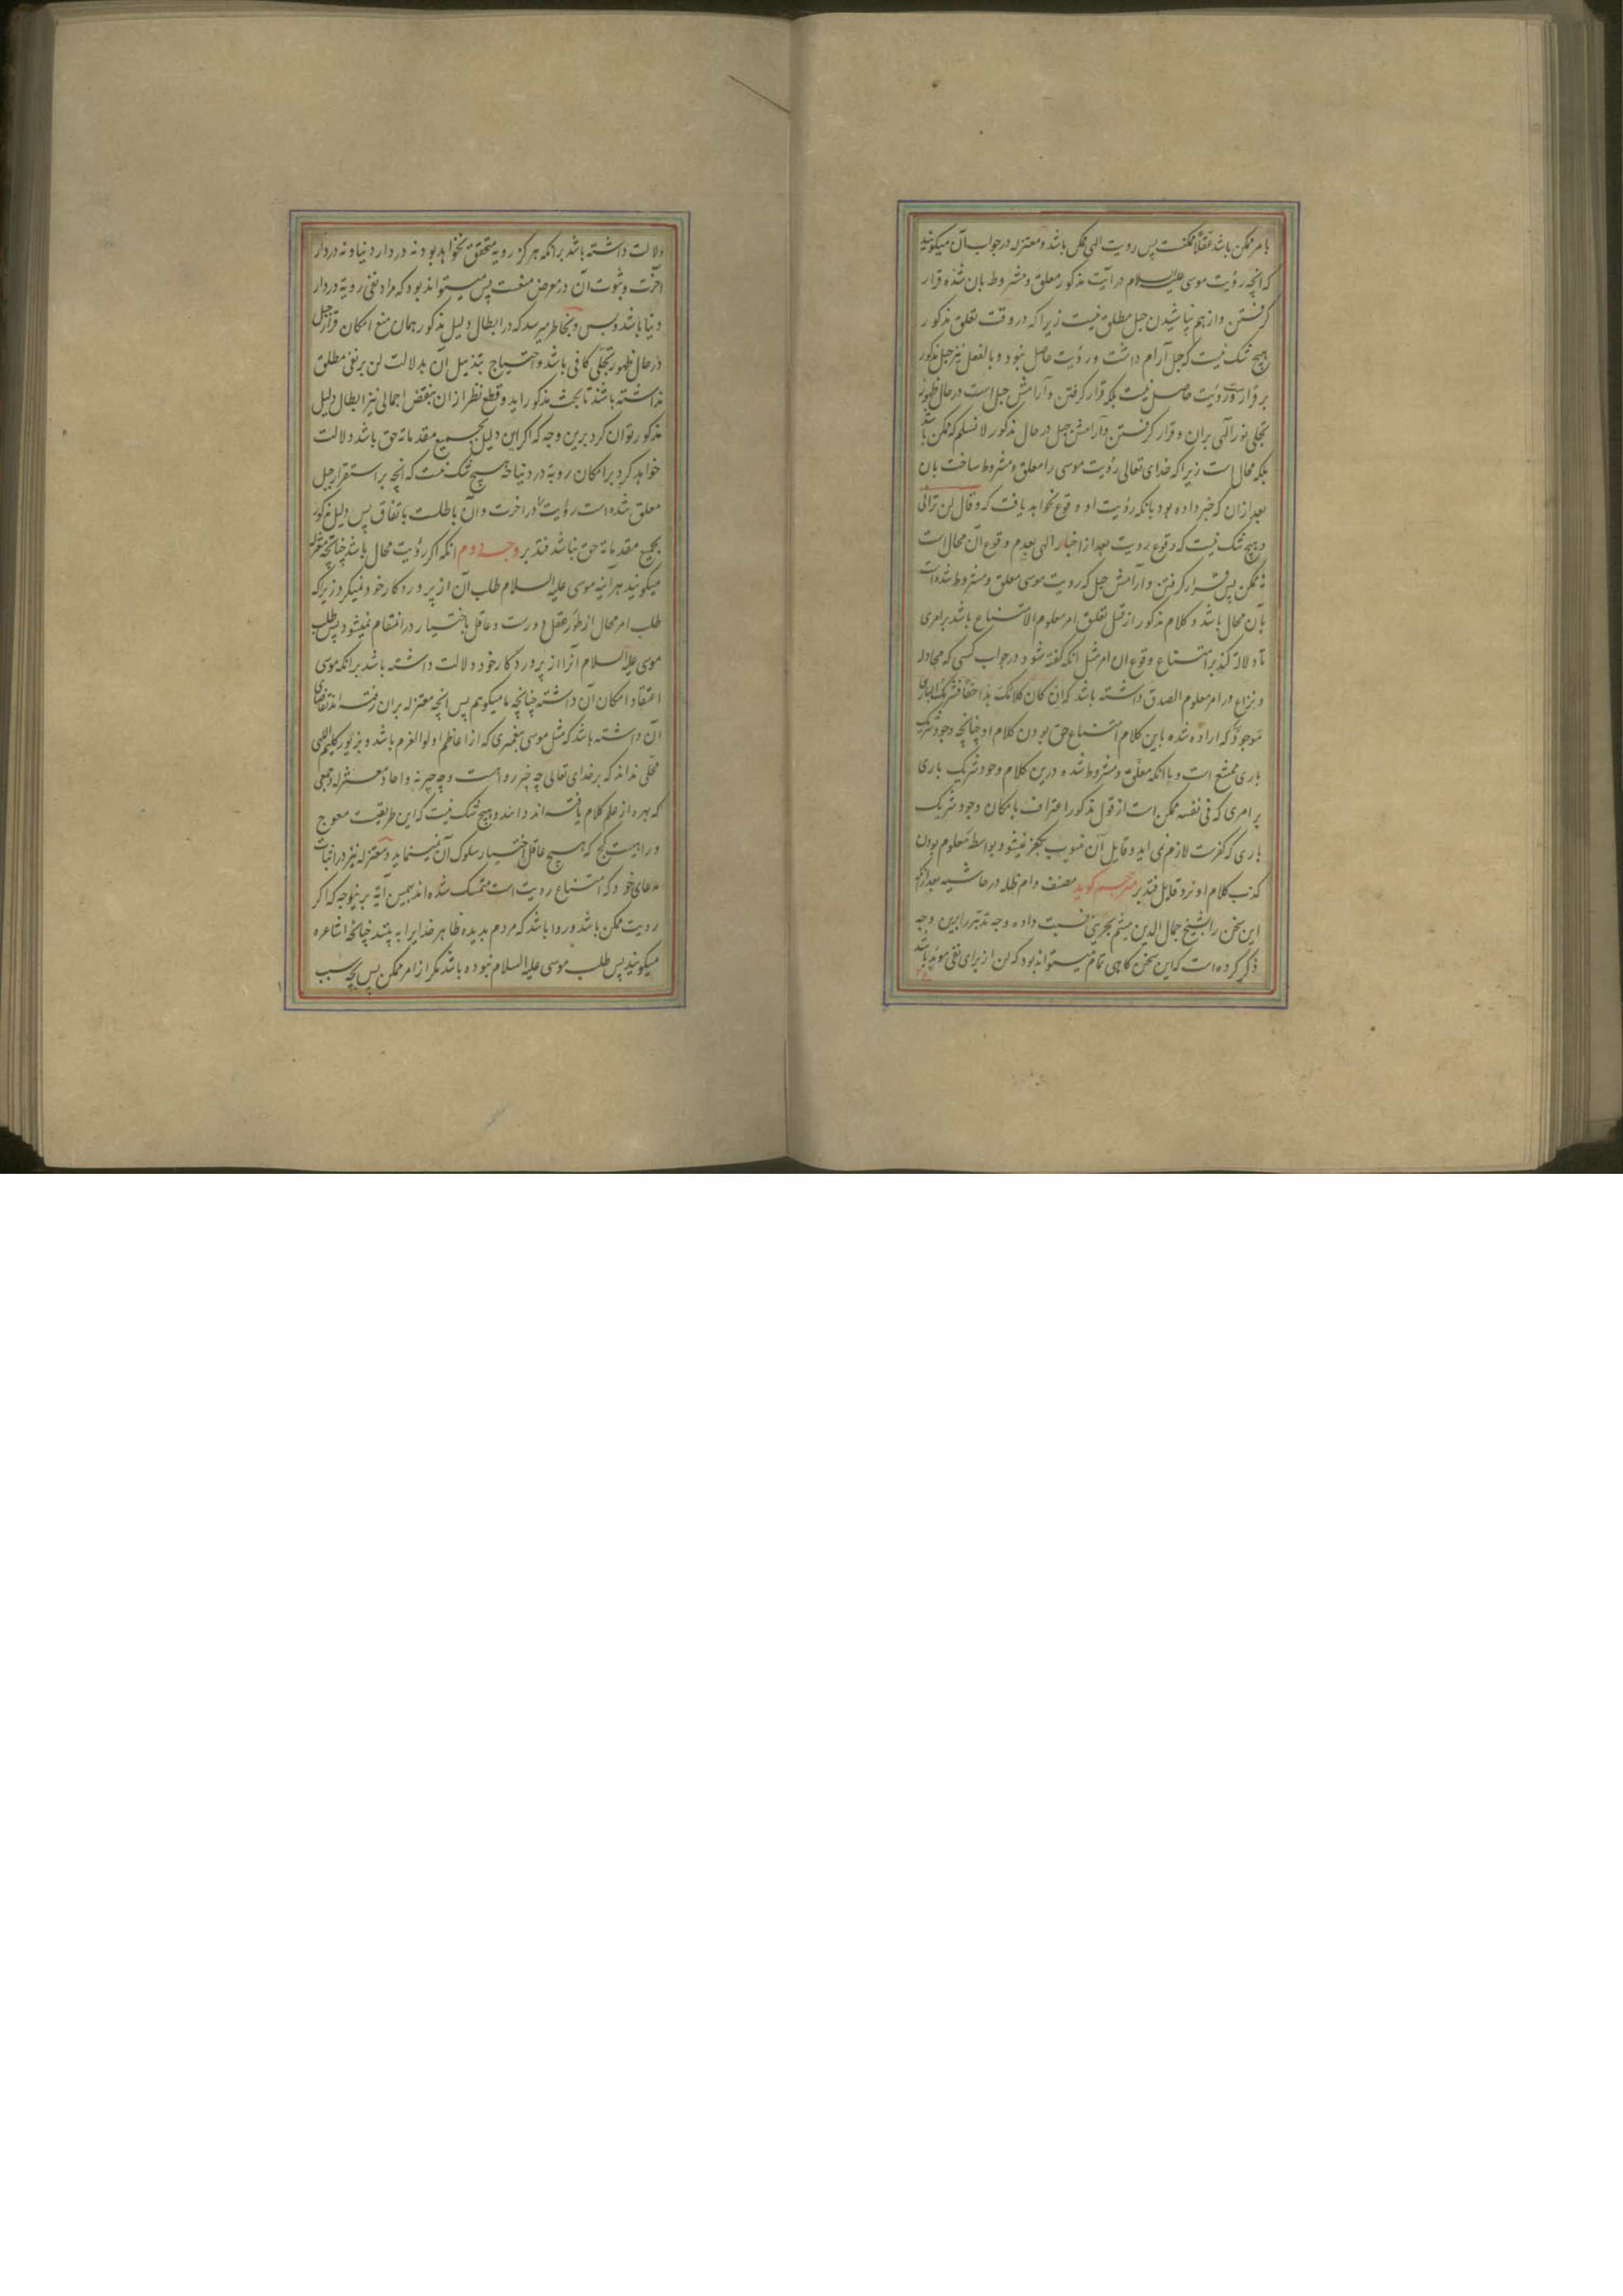 بامر ممکن باشد عقلا ممکنست پس رویت الهی ممکن باشد و معتزله در جواب آن میکویند
که انچه رؤیت موسی علیه السلام در آیت مذکور معلق و مشروط بان شده قرار
کرفتن و از هم نپاشیدن جبل مطلق نیست زیرا که در وقت تعلق مذکور
هیچ شک نیست که جبل آرام داشت و رؤیت حاصل نبود و بالفعل نیز جبل مذکور
برقرارست و رؤیت حاصل نیست بلکه قرار کرفتن و آرامش جبل است در حال ظهور
تجلی نور الهی بران و قرار کرفتن و آرامش جبل در حال مذکور لا نسلم که ممکن باشد
بلکه محال است زیرا که خدای تعالی رؤیت موسی را معلق و مشروط ساخت بان
بعد ازان که خبر داده بود بانکه رؤیت او وقوع نخواهد یافت که وقال لن ترانی
و هیچ شک نیست که وقوع رویت بعد از اخبار الهی بعدم وقوع آن محال است
نه ممکن پس قرار کرفتن و آرامش جبل که رویت موسی معلق و مشروط شده است
بان محال باشد و کلام مذکور از قبل تعلق امر معلوم الامتناع باشد بر امری
تا دلالة کند بر امتناع وقوع ان امر مثل انکه کفته شود در جواب کسی که مجادله
و نزاع در امر معلوم الصدق داشته باشد که ان کان کلامک هذا حقا فشریک الباری
موجود که اراده شده باین کلام امتناع حق بودن کلام او چنانچه وجود شریک
باری ممتنع است و با انکه معلق و مشروط شده درین کلام وجود شریک باری
بر امری که فی نفسه ممکن است از قول مذکور اعتراف بامکان وجود شریک
باری که کفرست لازم نمی اید و قایل آن منسوب بکفر نمیشود بواسطه معلوم بودن
کذب کلام او نزد قایل فتدبر مترجم کوید مصنف دام ظله در حاشیه بعد ازانکه
این سخن را بشیخ جمال الدین میثم بحرینی نسبت داده وجه تدبر را بدین وجه
ذکر کرده است که این سخن کاهی تمام میتواند بود که لن از برای نفی مؤبد باشد
دلالت داشته باشد برانکه هرکز رویة متحقق نخواهد بود نه در دار دنیا و نه در دار
آخرت و ثبوت آن در معرض منعست پس میتواند بود که مراد نفی رویة در دار
دنیا باشد و بس و بخاطر میرسد که در ابطال دلیل مذکور همان منع امکان قرار جبل
در حال ظهور تجلی کافی باشد و احتیاج بتذییل آن بدلالت لن بر نفی مطلق
نداشته باشد تا بحث مذکور اید و قطع نظر ازان بنقض اجمالی نیز ابطال دلیل
مذکور توان کرد برین وجه که اکر این دلیل بجمیع مقدماته حق باشد دلالت
خواهد کرد بر امکان رویة در دنیا چه هیچ شک نیست که انچه بر استقرار جبل
معلق شده است رؤیت در اخرت و آن باطلست باتفاق پس دلیل مذکور
بجمیع مقدماته حق نباشد فتدبر وجه دوم انکه اکر رؤیت محال باشد چنانچه معتزله
میکویند هر آینه موسی علیه السلام طلب آن از پروردکار خود نمیکرد زیرا که
طلب امر محال از طور عقل دورست و عاقل باختیار در انمقام نمیشود پس طلب
موسی علیه السلام آنرا از پروردکار خود دلالت داشته باشد برانکه موسی
اعتقاد امکان آن داشته چنانچه ما میکوییم پس انچه معتزله بران رفته اند تقاضای
آن داشته باشد که مثل موسی پیغمبری که از اعاظم اولوا العزم باشد و بزیور کلیم اللهی
محلی نداند که بر خدای تعالی چه چیز رواست و چه چیز نه و احاد معتزله و جمعی
که بهره از علم کلام یافته اند دانند و هیچ شک نیست که این طریقیست معوج
و راهیست کج که هیچ عاقل اختیار سلوک آن نمینماید و معتزله نیز در اثبات
مدعای خود که امتناع رویت است متمسک شده اند بهمین آیة برینوجه که اکر
رویت ممکن باشد و روا باشد که مردم بدیده ظاهر خدایرا به بینند چنانچه اشاعره
میکویند پس طلب موسی علیه السلام نبوده باشد مکر از امر ممکن پس بچه سبب